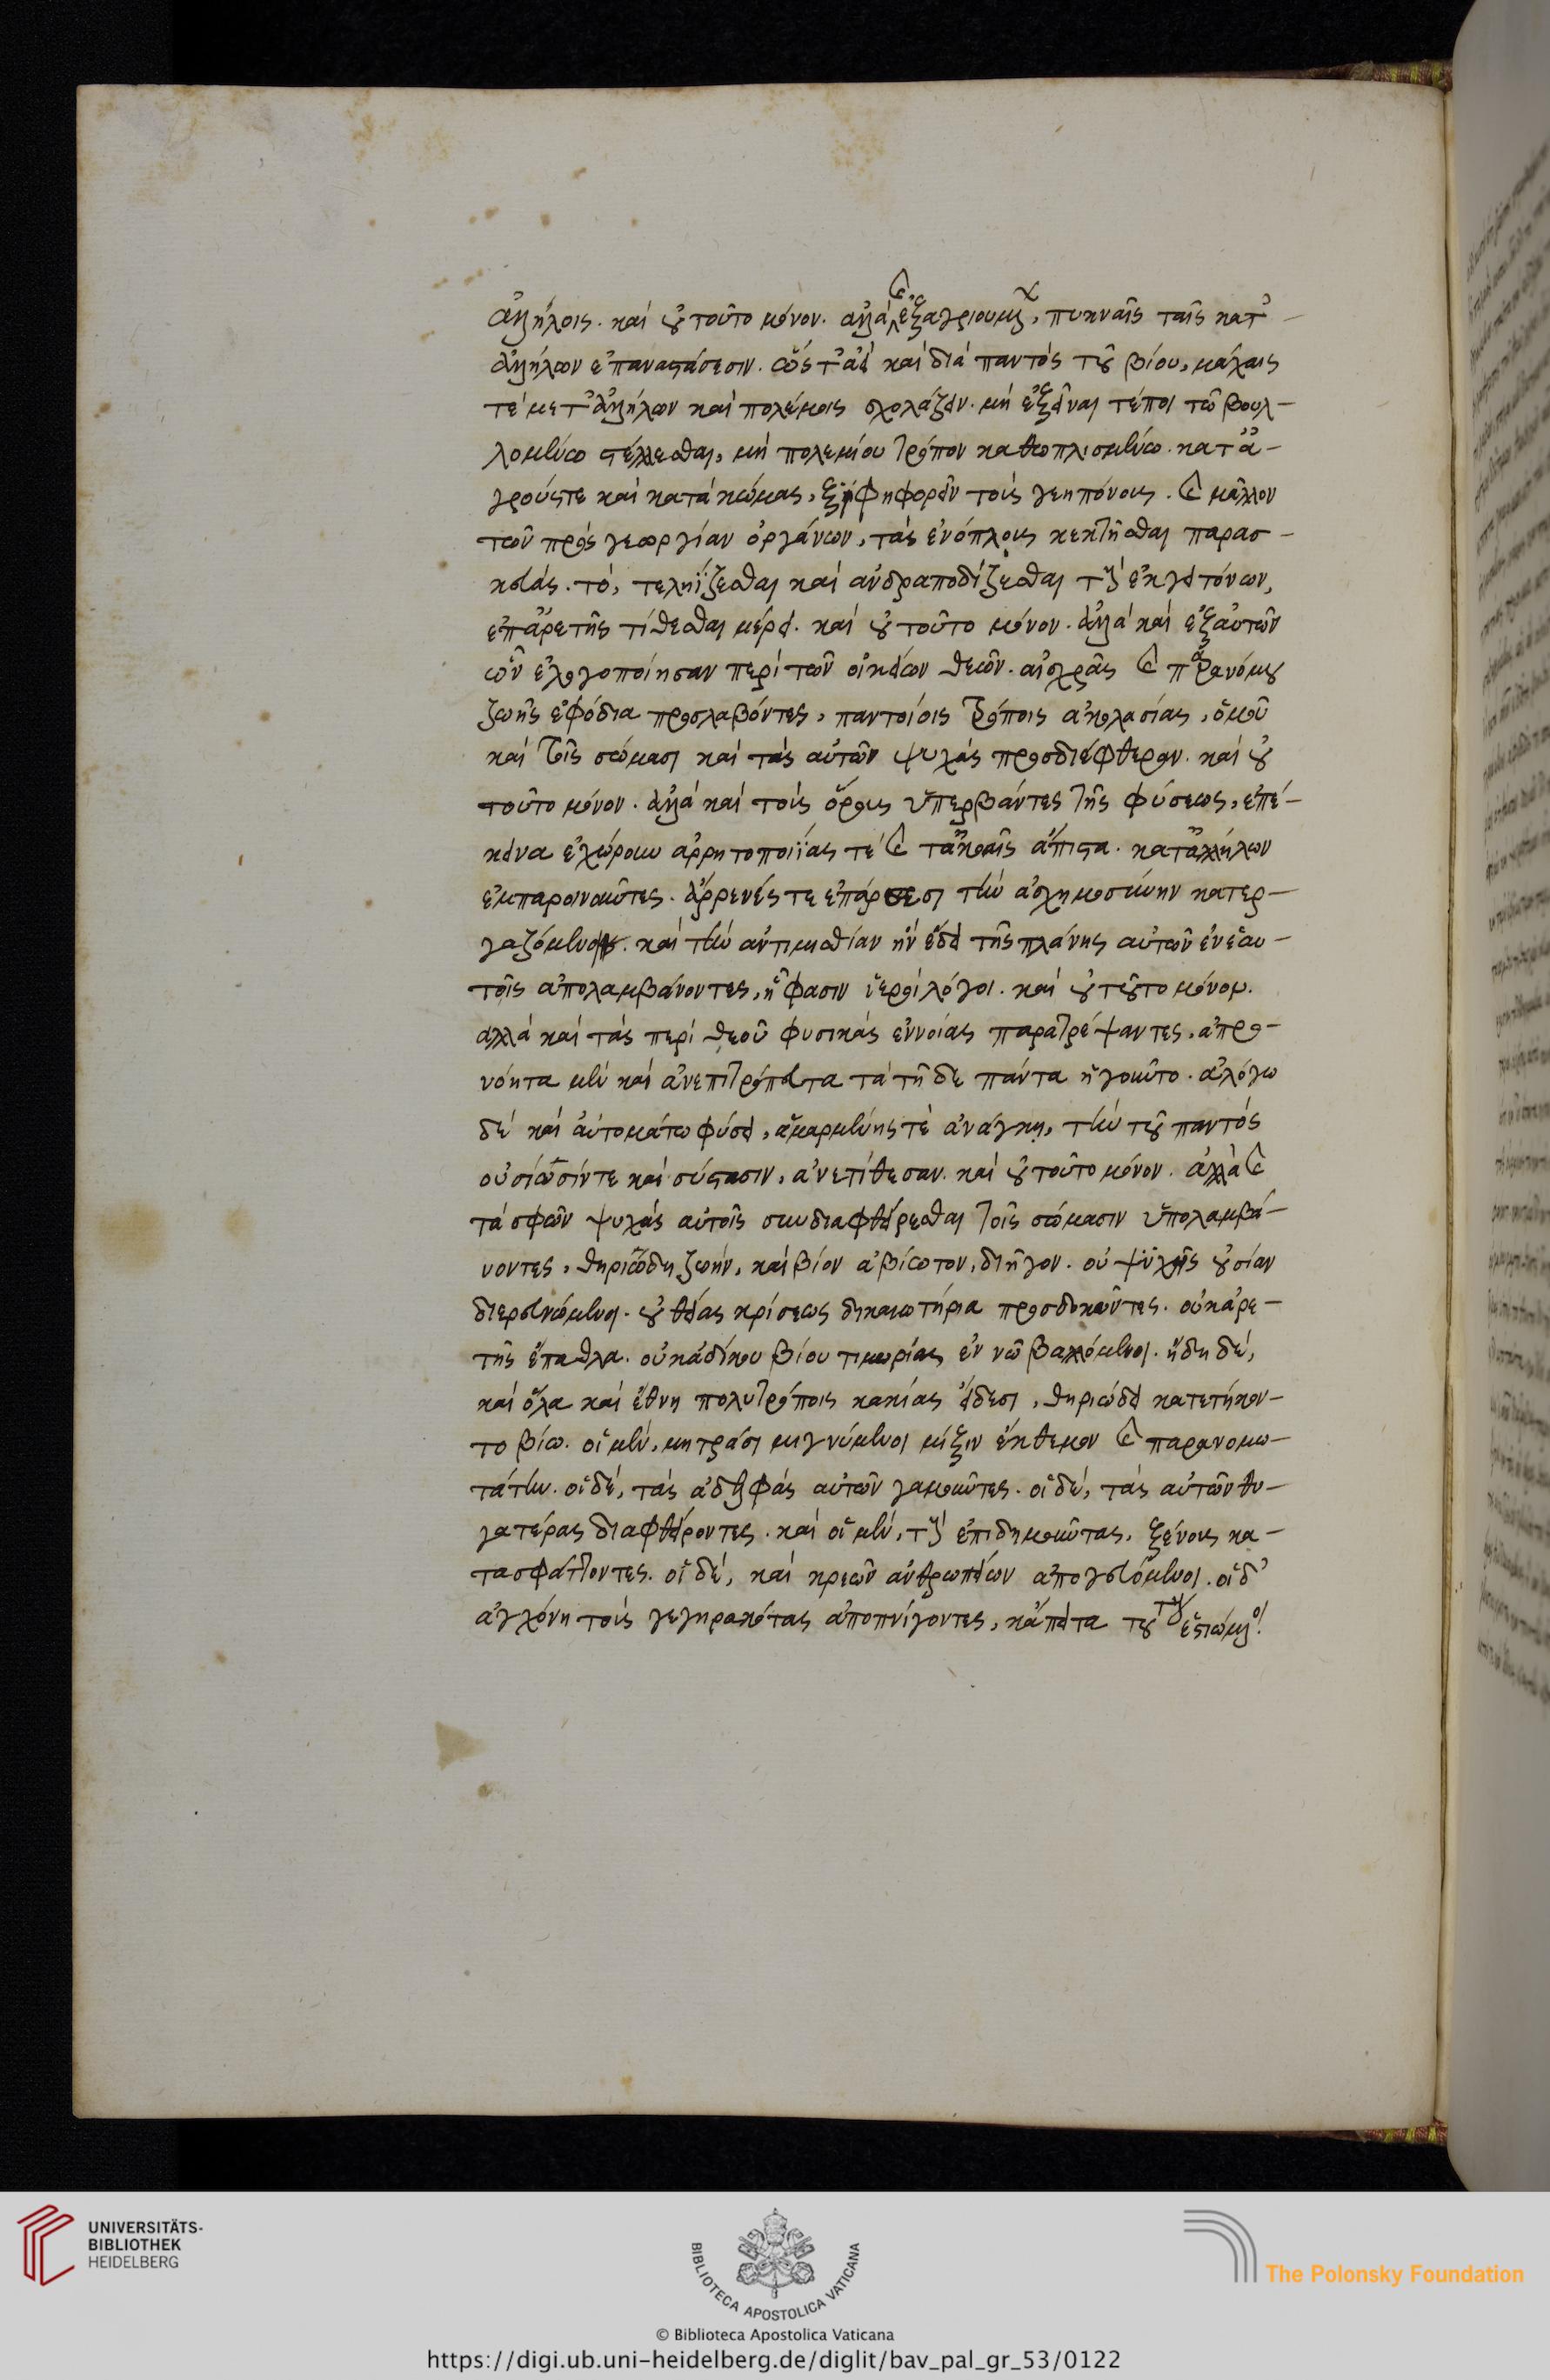 ἀλλήλοις. καὶ οὐ τοῦτο μόνον. ἀλλὰ καὶ ἐξαγριουμεν, πυκναῖς ταῖς κατ᾽
ἀλλήλων ἐπαναστάσεσιν. ὥς τ᾽ ἀεὶ καὶ διὰ παντὸς τοῦ βίου, μάχαις
τὲ μετ᾽ ἀλλήλων καὶ πολέμοις σχολάζειν. μὴ ἐξεῖναι τέποι τῶ βουλ-
λομένω στέλλεσθαι, μὴ πολεμίου τρόπον καθωπλισμένω. κατ᾽ ἀ-
γρούς τε καὶ κατὰ κώμας, ξιφηφορεῖν τοὺς γεηπόνους. καὶ μᾶλλον
τῶν πρὸς γεωργίαν ὀργάνων, τὰς ἐνόπλους κεκτῆσθαι παρασ-
κευάς. τό, τε ληΐζεσθαι καὶ ἀνδραποδίζεσθαι τοὺς ἐκ γειτόνων,
ἐπ᾽ ἀρετῆς τίθεσθαι μέρει. καὶ οὐ τοῦτο μόνον. ἀλλὰ καὶ ἐξ αὐτῶν
ὧν ἐλογοποίησαν περὶ τῶν οἰκείων θεῶν. αἰσχρᾶς καὶ παρανόμου
ζωῆς ἐφόδια προσλαβόντες, παντοίοις τρόποις ἀκολασίας, ὁμοῦ
καὶ τοῖς σώμασι καὶ τὰς αὐτῶν ψυχὰς προσδιέφθερον. καὶ οὐ
τοῦτο μόνον. ἀλλὰ καὶ τοὺς ὅρους ὑπερβάντες τῆς φύσεως, ἐπέ-
κεινα ἐχώρουν ἀρρητοποιΐας τὲ καὶ τὰ ἀκοαῖς ἄπιστα. κατ᾽ ἀλλήλων
ἐμπαροινοῦντες. ἄρρενές τε ἐπ᾽ ἄρσεσι τὴν ἀσχημοσύνην κατερ-
γαζόμενοι. καὶ τὴν ἀντιμισθίαν ἣν ἔδει τῆς πλάνης αὐτῶν ἐν ἑαυ-
τοῖς ἀπολαμβάνοντες, ᾗ φασιν ἱεροὶ λόγοι. καὶ οὐ τοῦτο μόνον.
ἀλλὰ καὶ τὰς περὶ θεοῦ φυσικὰς ἐννοίας παρατρέψαντες, ἀπρο-
νόητα μὲν καὶ ἀνεπιτρόπευτα τὰ τῇδε πάντα ἡγοῦντο. ἀλόγω
δὲ καὶ αὐτομάτω φύσει, εἱμαρμένης τὲ ἀνάγκη, τὴν τοῦ παντὸς
οὐσίωσίν τε καὶ σύστασιν, ἀνετίθεσαν. καὶ οὐ τοῦτο μόνον. ἀλλὰ καὶ
τὰ σφῶν ψυχὰς αὐτοῖς συνδιαφθείρεσθαι τοῖς σώμασιν ὑπολαμβά-
νοντες, θηριώδη ζωήν, καὶ βίον ἀβίωτον, διῆγον. οὐ ψυχῆς οὐσίαν
διερευνώμενοι. οὐ θείας κρίσεως δικαιωτήρια προσδοκῶντες. οὐκ ἀρε-
τῆς ἔπαθλα. οὐκ ἀδίκου βίου τιμωρίας ἐν νῶ βαλλόμενοι. ἤδη δέ,
καὶ ὅλα καὶ ἔθνη πολυτρόποις κακίας εἴδεσι, θηριώδει κατετήκον-
το βίω. οἱ μέν, μητράσι μιγνύμενοι μίξιν ἔκθεσμον καὶ παρανομω-
τάτην. οἱ δέ, τὰς ἀδελφὰς αὐτῶν γαμοῦντες. οἱ δέ, τὰς αὐτῶν θυ-
γατέρας διαφθείροντες. καὶ οἱ μέν, τοὺς ἐπιδημοῦντας, ξένους κα-
τασφάττοντες. οἱ δέ, καὶ κρεῶν ἀνθρωπείων ἀπογευόμενοι. οἱ δ᾽
ἀγχόνη τοὺς γεγηρακότας ἀποπνίγοντες, κἄπειτα τούτους ἑστιώμενοι.
UNIVERSITÄTS-
BIBLIOTHEK
HEIDELBERG
BIBLIOTECA APOSTOLICA VATICANA
The Polonsky Foundation
© Biblioteca Apostolica Vaticana
https://digi.ub.uni-heidelberg.de/diglit/bav_pal_gr_53/0122